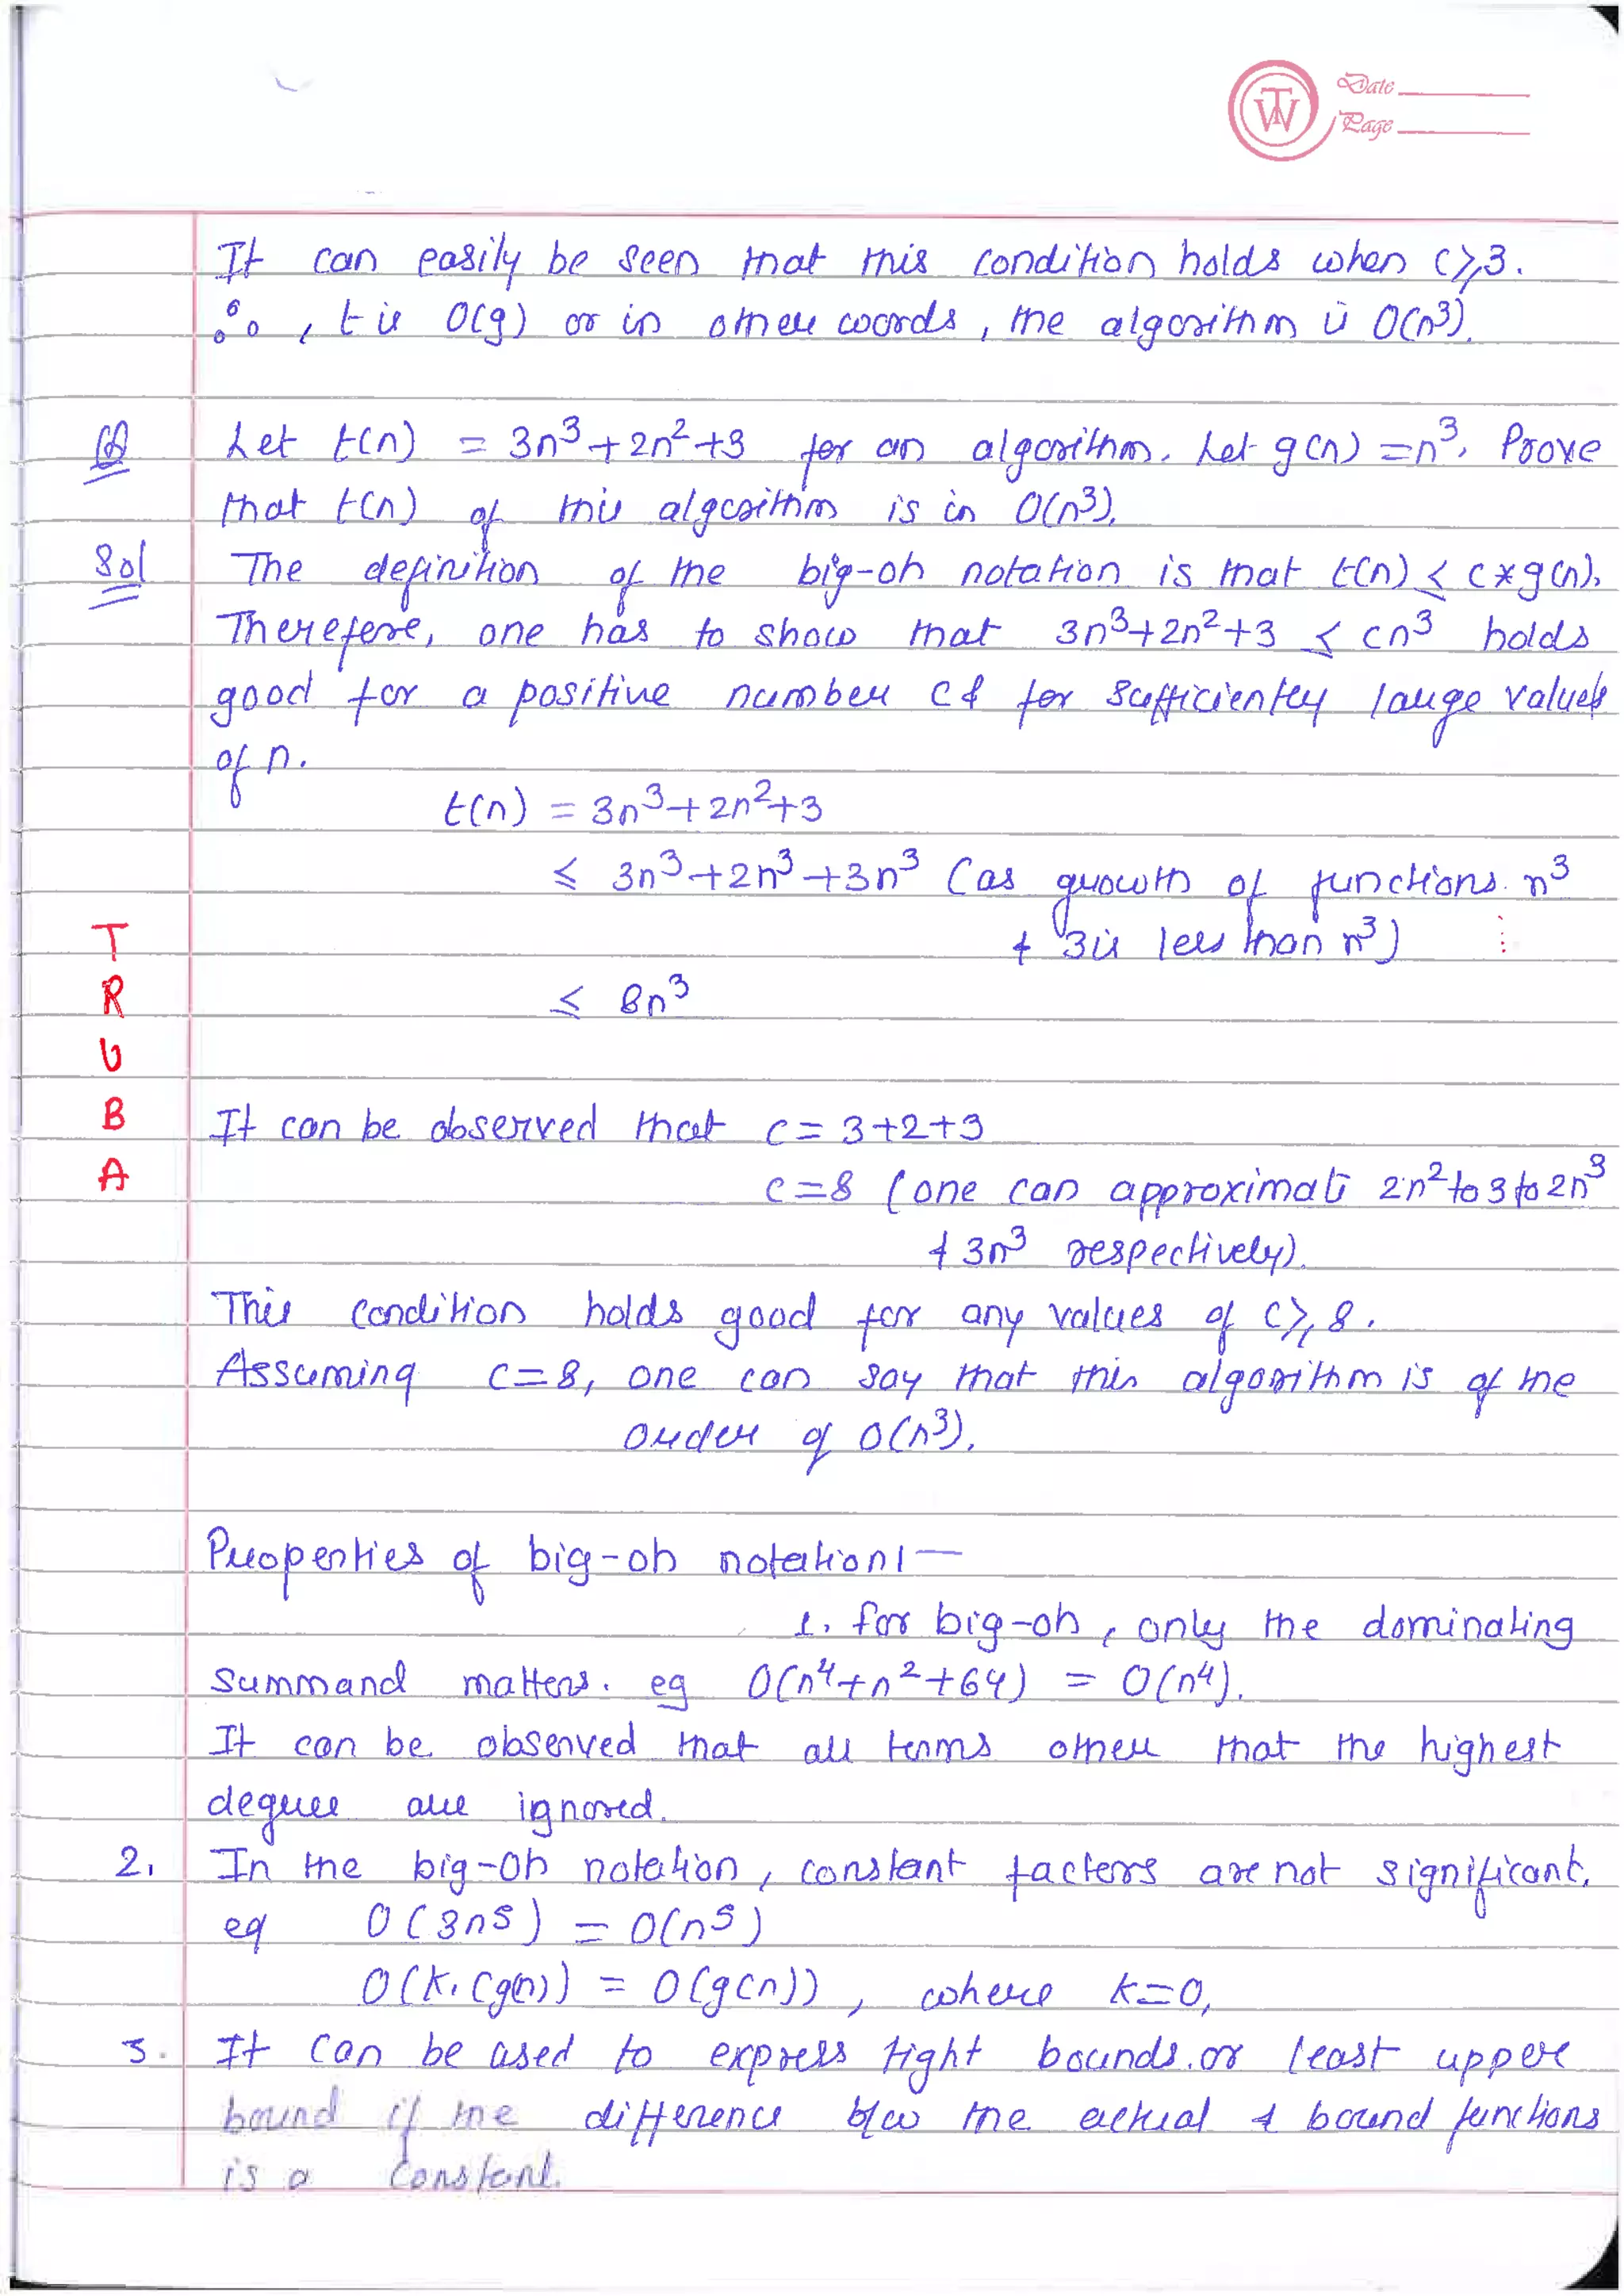 TW
Date
Page
It can easily be seen that this condition holds when c⩾3.
∴ , t is O(g) or in other words, the algorithm is O(n³).
Q Let t(n) = 3n³+2n²+3 for an algorithm. Let g(n) = n³. Prove
that t(n) of this algorithm is in O(n³).
Sol The definition of the big-oh notation is that t(n) ⩽ c*g(n).
Therefore, one has to show that 3n³+2n²+3 ⩽ cn³ holds
good for a positive number c & for sufficiently large values
of n.
t(n) = 3n³+2n²+3
⩽ 3n³+2n³+3n³ (as growth of functions n³
& 3 is less than n³)
⩽ 8n³
T
R
U
B
A
It can be observed that c = 3+2+3
c=8 (one can approximate 2n² to 3 to 2n³
& 3n³ respectively).
This condition holds good for any values of c⩾8.
Assuming c=8, one can say that this algorithm is of the
order of O(n³).
Properties of big-oh notation!—
1. for big-oh, only the dominating
summand matters. eg O(n⁴+n²+64) = O(n⁴).
It can be observed that all terms other that the highest
degree are ignored.
2. In the big-oh notation, constant factors are not significant.
eg O(3n⁵) = O(n⁵)
O(k.(g(n)) = O(g(n)), where k=0,
3. It can be used to express tight bounds.or least upper
bound if the difference b/w the actual & bound functions
is a constant.